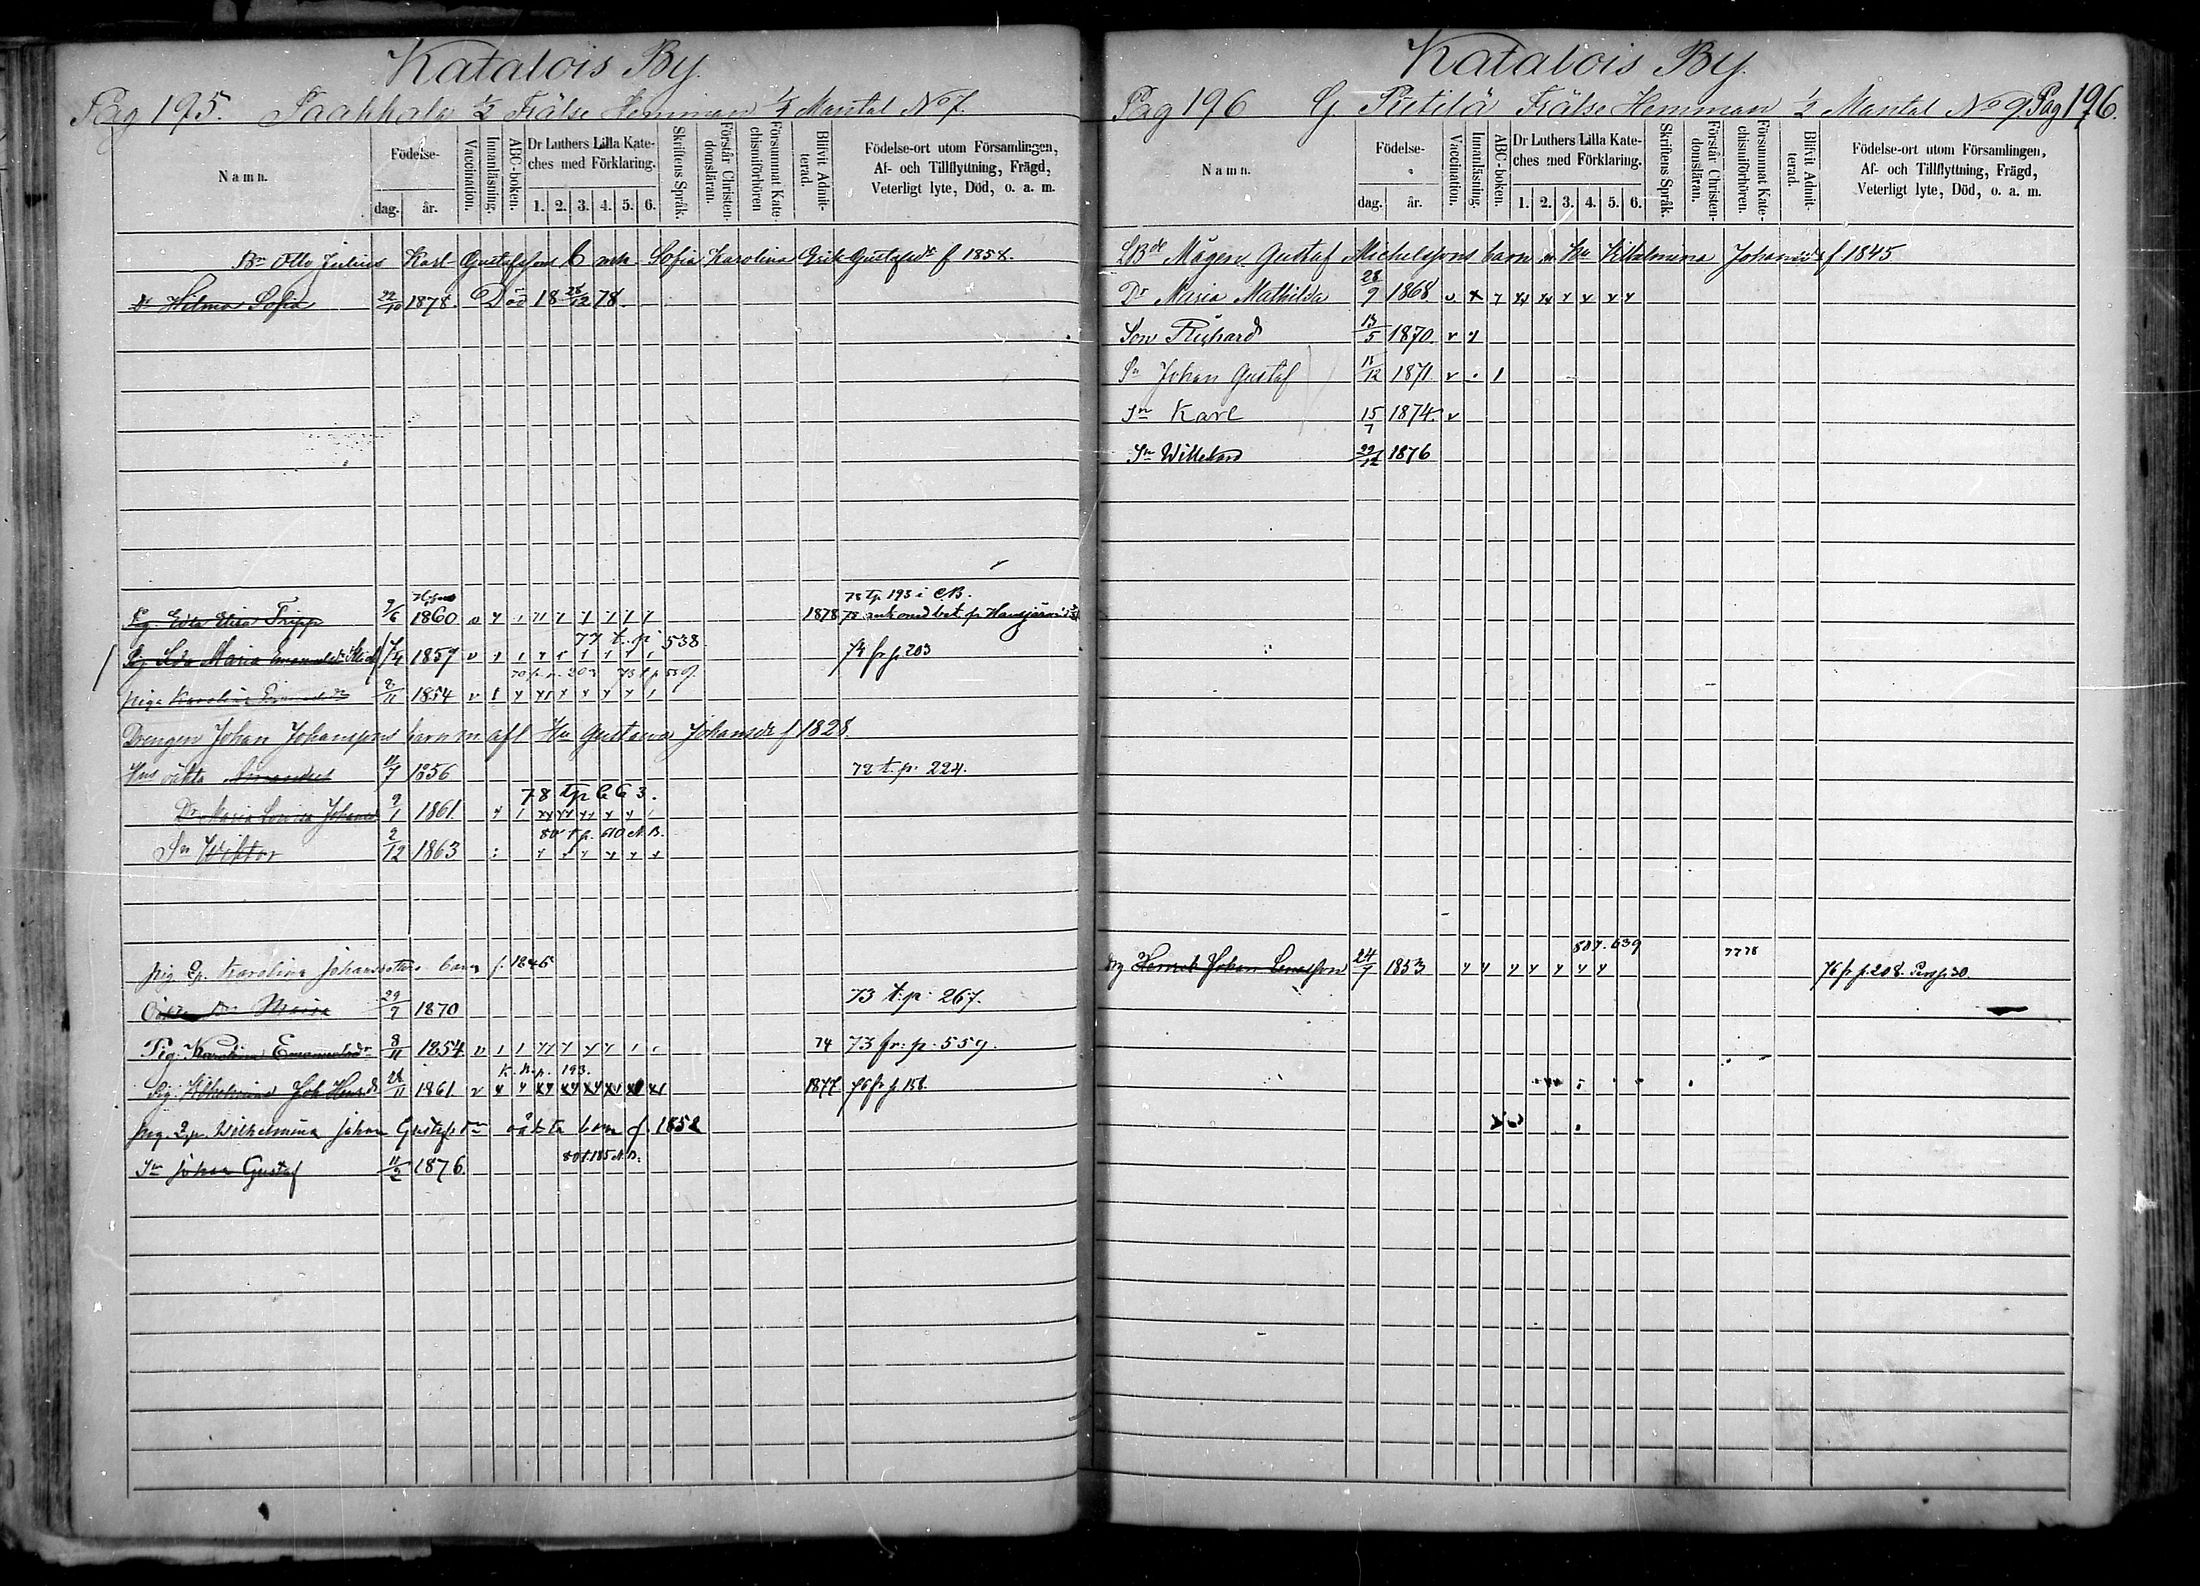 Katalois By.
Pag 195. Saakkala ½ Frälse Hemman ½ Mantal No 7.
Namn.
Födelse-
dag. år.
Vaccination.
Innanläsning.
ABC-boken.
Dr Luthers Lilla Kate-
ches med Förklaring.
1. 2. 3. 4. 5. 6.
Skriftens Språk.
Förstår Christen-
domsläran.
Försummat Kate-
chismiförhören
Blifvit Admit-
terad.
Födelse-ort utom Församlingen,
Af- och Tillflyttning, Frägd,
Veterligt lyte, Död, o. a. m.
Otto Julius Karl Gustafssons Sofia Karolina Erik Gustafsdr f 1854.
Dr Hilma Sofia 22/10 1878. Död 18 28/12 78.
78 tp 193 i C.B.
Pig. Edla Elisa Tripp 9/6 1860 v 1878
77 t. p. 538
Pig Ida Maria 7/4 1857 v 74 fr p. 203
Piga Karolina 8/11 1854 v
Drengen Johan Johanssons barn m afl Hu Gustava Johansdr f 1828
Hus oäkta Amandus 11/7 1856 72 t. p. 224.
78 tp 663.
Dr Maria Lovisa Johansd 9/1 1861
80 t p. 610 N.B.
Sn Wiktor 2/12 1863
pig. Karolina Johansdotters barn f. 1846
Oäkta Dr Maria 29/7 1870 73 t. p. 267.
Pig. Karolina Emanuelsdr 8/11 1854 v 74 73 fr. p. 559.
K. p. p. 193.
Pig. Wilhelmina Joh Henrd 28/11 1861 v 1877 76 fr p 158.
pig. Wilhelmina Johan Gustafsdr oäkta barn f. 1852
80 t. 185 N.B.
Sn Johan Gustaf 11/2 1876
Katalois By.
Pag 196 G. Pietilä Frälse Hemman ½ Mantal No 9. Pag 196.
Namn.
Födelse-
dag. år.
Vaccination.
Innanläsning.
ABC-boken.
Dr Luthers Lilla Kate-
ches med Förklaring.
1. 2. 3. 4. 5. 6.
Skriftens Språk.
Förstår Christen-
domsläran.
Försummat Kate-
chismiförhören.
Blifvit Admit-
terad.
Födelse-ort utom Församlingen,
Af- och Tillflyttning, Frägd,
Veterligt lyte, Död, o. a. m.
Mågen Gustaf Michelssons barn m Hu Wilhelmina Johansdr f 1845
Dr Maria Mathilda 28/9 1868 v
Son Richard 13/5 1870 v
Sn Johan Gustaf 15/12 1871 v
Sn Karl 15/7 1874. v
Sn Willehard 29/12 1876
80 t. 639
7778
drg Henrik Johan 24/7 1853 76 fr p. 208.